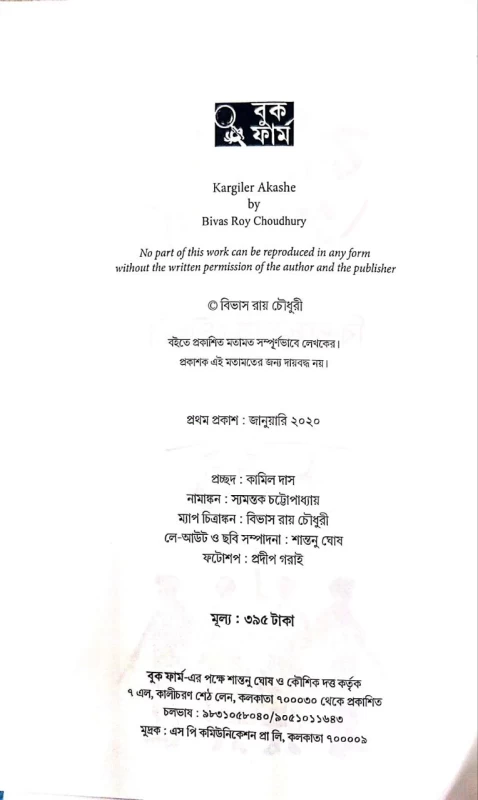 বুক
ফার্ম
Kargiler Akashe
by
Bivas Roy Choudhury
No part of this work can be reproduced in any form
without the written permission of the author and the publisher
© বিভাস রায় চৌধুরী
বইতে প্রকাশিত মতামত সম্পূর্ণভাবে লেখকের।
প্রকাশক এই মতামতের জন্য দায়বদ্ধ নয়।
প্রথম প্রকাশ : জানুয়ারি ২০২০
প্রচ্ছদ : কামিল দাস
নামাঙ্কন : স্যমন্তক চট্টোপাধ্যায়
ম্যাপ চিত্রাঙ্কন : বিভাস রায় চৌধুরী
লে-আউট ও ছবি সম্পাদনা : শান্তনু ঘোষ
ফটোশপ : প্রদীপ গরাই
মূল্য : ৩৯৫ টাকা
বুক ফার্ম-এর পক্ষে শান্তনু ঘোষ ও কৌশিক দত্ত কর্তৃক
৭ এল, কালীচরণ শেঠ লেন, কলকাতা ৭০০০৩০ থেকে প্রকাশিত
চলভাষ : ৯৮৩১০৫৮০৪০/৯০৫১০১১৬৪৩
মুদ্রক : এস পি কমিউনিকেশন প্রা লি, কলকাতা ৭০০০০৯